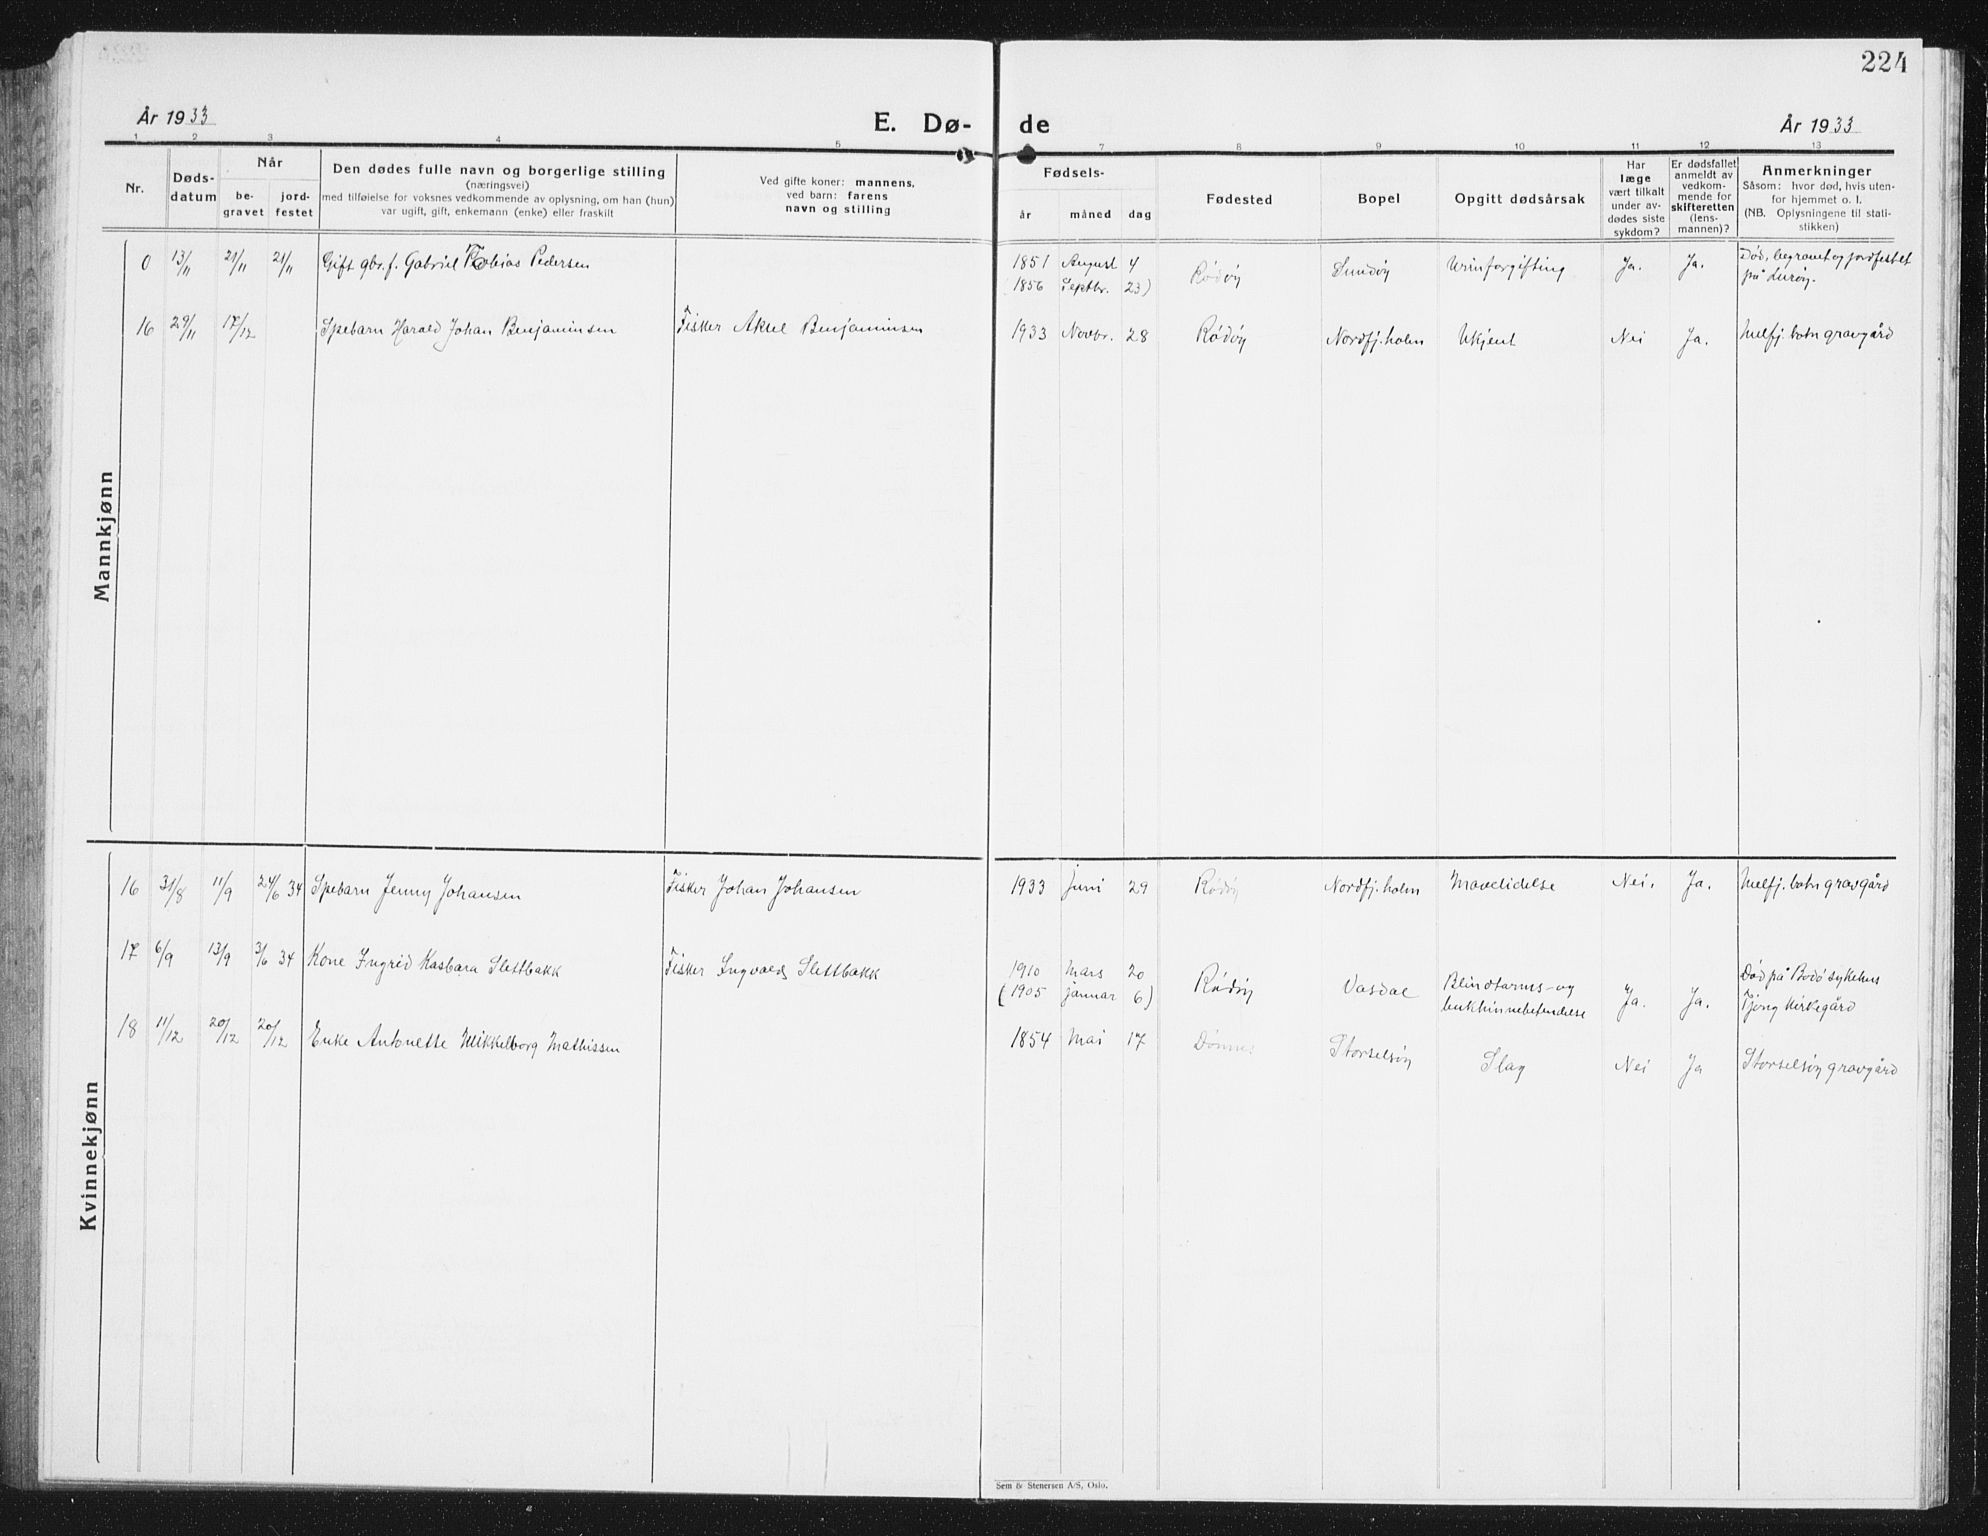 224
År 1933
E. Dø- de
År 1933
1 2 3 4 5 7 8 9 10 11 12 13
Nr.
Døds-
datum
Når
be-
gravet
jord-
festet
Den dødes fulle navn og borgerlige stilling
(næringsvei)
med tilføielse for voksnes vedkommende av oplysning, om han (hun)
var ugift, gift, enkemann (enke) eller fraskilt
Ved gifte koner: mannens,
ved barn: farens
navn og stilling
Fødsels-
år måned dag
Fødested
Bopel
Opgitt dødsårsak
Har
læge
vært tilkalt
under av-
dødes siste
sykdom?
Er dødsfallet
anmeldt av
vedkom-
mende for
skifteretten
(lens-
mannen)?
Anmerkninger
Såsom: hvor død, hvis uten-
for hjemmet o. l.
(NB. Oplysningene til stati-
stikken)
Mannkjønn
0 13/11 21/11 21/11 Gift gbr.f. Gabriel Tobias Pedersen 1851 August 4 Rødøy Sundøy Urinforgifting Ja. Ja. Død, begravet og jordfestet
1856 Septbr. 23) på Lurøy.
16 29/11 17/12 Spebarn Harald Johan Benjaminsen Fisker Aksel Benjaminsen 1933 Novbr. 28 Rødøy Nordfj.holm Ukjent Nei Ja. Melfj.botn gravgård
Kvinnekjønn
16 31/8 11/9 24/6 34 Spebarn Jenny Johansen Fisker Johan Johansen 1933 Juni 29 Rødøy Nordfj.holm Mavelidelse Nei. Ja. Melfj.botn gravgård
17 6/9 13/9 3/6 34 Kone Ingrid Kasbara Slettbakk Fisker Ingvald Slettbakk 1910 Mars 20 Rødøy Vasdal Blindtarms- og Ja. Ja. Død på Bodø sykehus
(1905 januar 6) bukhinnebetendelse Tjong kirkegård
18 11/12 20/12 20/12 Enke Antonette Mikkelborg Mathissen 1854 Mai 17 Dønnes Storselsøy Slag Nei Ja Storselsøy gravgård
Sem & Stenersen A/S, Oslo.